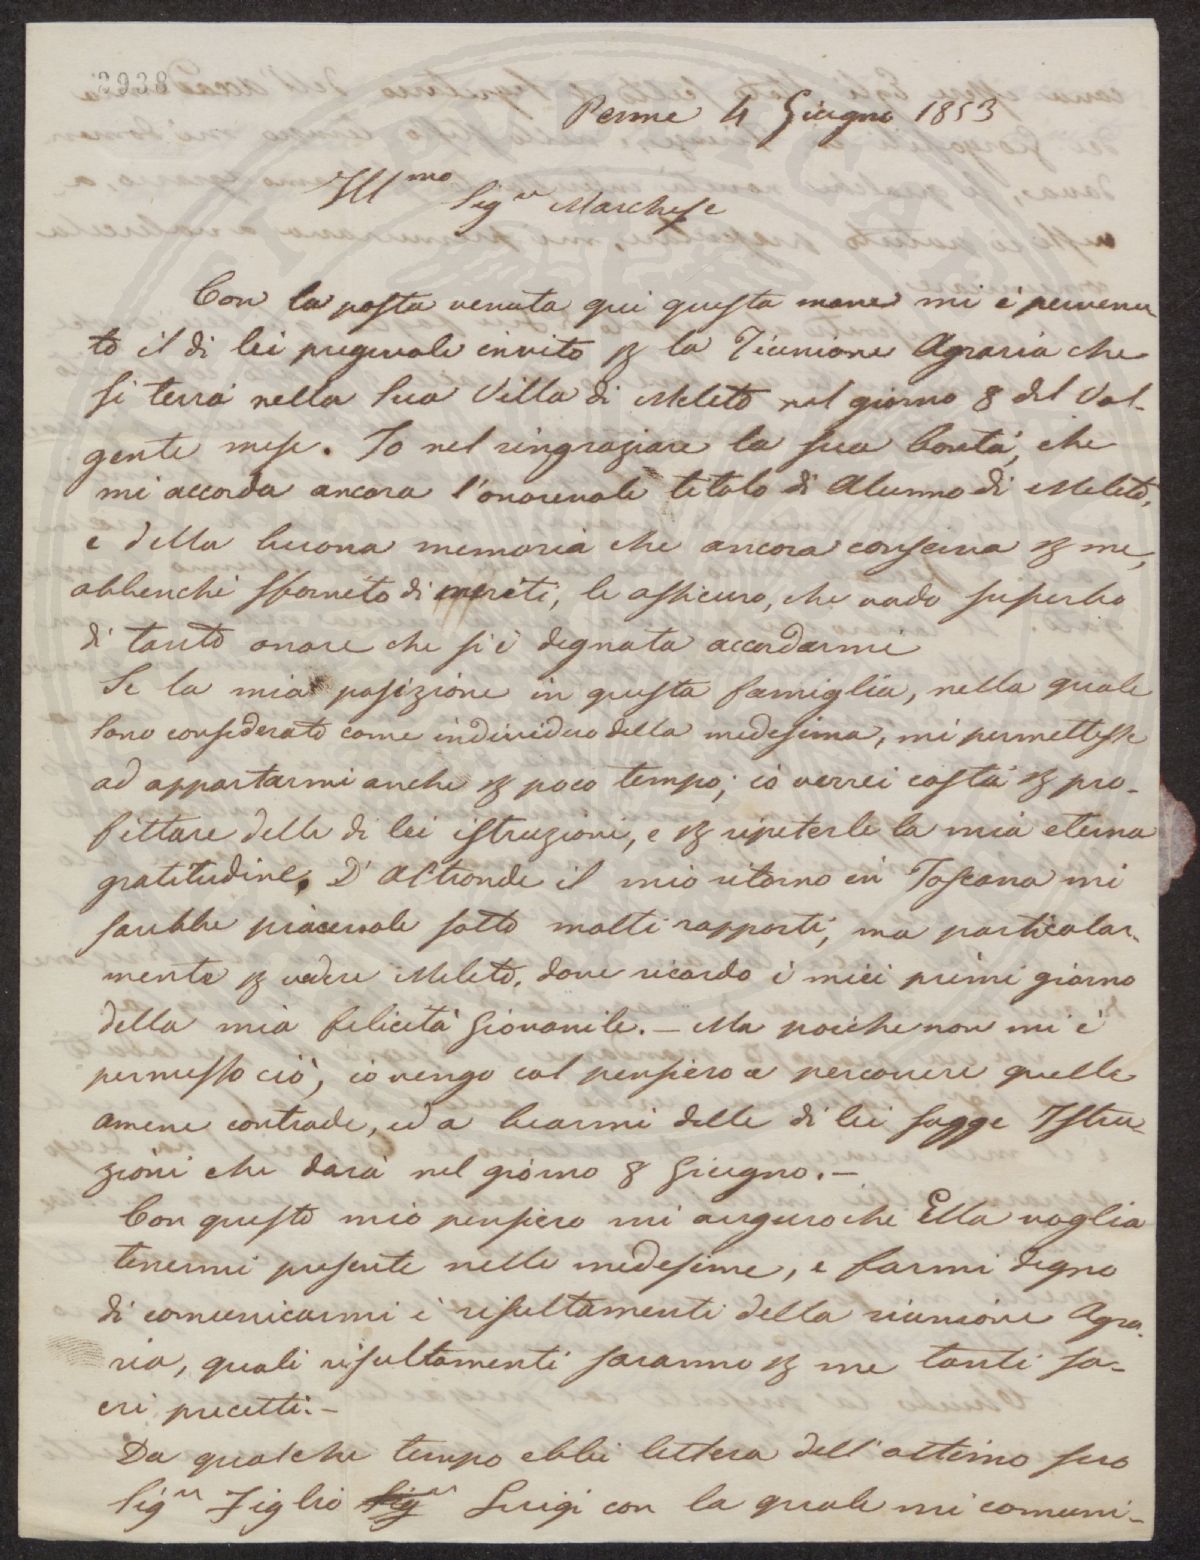 3938
Penne 4 Giugno 1853
Ill.mo Sig.re Marchese
Con la posta venuta qui questa mane mi è pervenu-
to il di lei pregevole invito per la Riunione Agraria che
si terrà nella Sua Villa di Meleto nel giorno 8 del vol-
gente mese. Io nel ringraziare la sua bontà, che
mi accorda ancora l'onorevole titolo di Alunno di Meleto,
e della buona memoria che ancora conserva per me,
abbenchè sfornito di meriti, le assicuro, che vado superbo
di tanto onore che si è degnata accordarmi
Se la mia posizione in questa famiglia, nella quale
sono considerato come individuo della medesima, mi permettesse
ad appartarmi anche per poco tempo, io verrei costà per pro-
fittare delle di lei istruzioni, e per ripeterle la mia eterna
gratitudine. D'altronde il mio ritorno in Toscana mi
sarebbe piacevole sotto molti rapporti, ma particolar-
mente per vedere Meleto, dove ricordo i miei primi giorno
della mia felicità Giovanile. — Ma poiche non mi è
permesso ciò, io vengo col pensiero a percorrere quelle
amene contrade, ed a bearmi delle di lei sagge Istru-
zioni che darà nel giorno 8 Giugno. —
Con questo mio pensiero mi auguro che Ella voglia
tenermi presente nelle medesime, e farmi degno
di comunicarmi i risultamenti della riunione Agra-
ria, quali risultamenti saranno per me tanti sa-
cri precetti. —
Da qualche tempo ebbi lettera dell'ottimo suo
Sig.r Figlio Sig.r Luigi con la quale mi comuni-